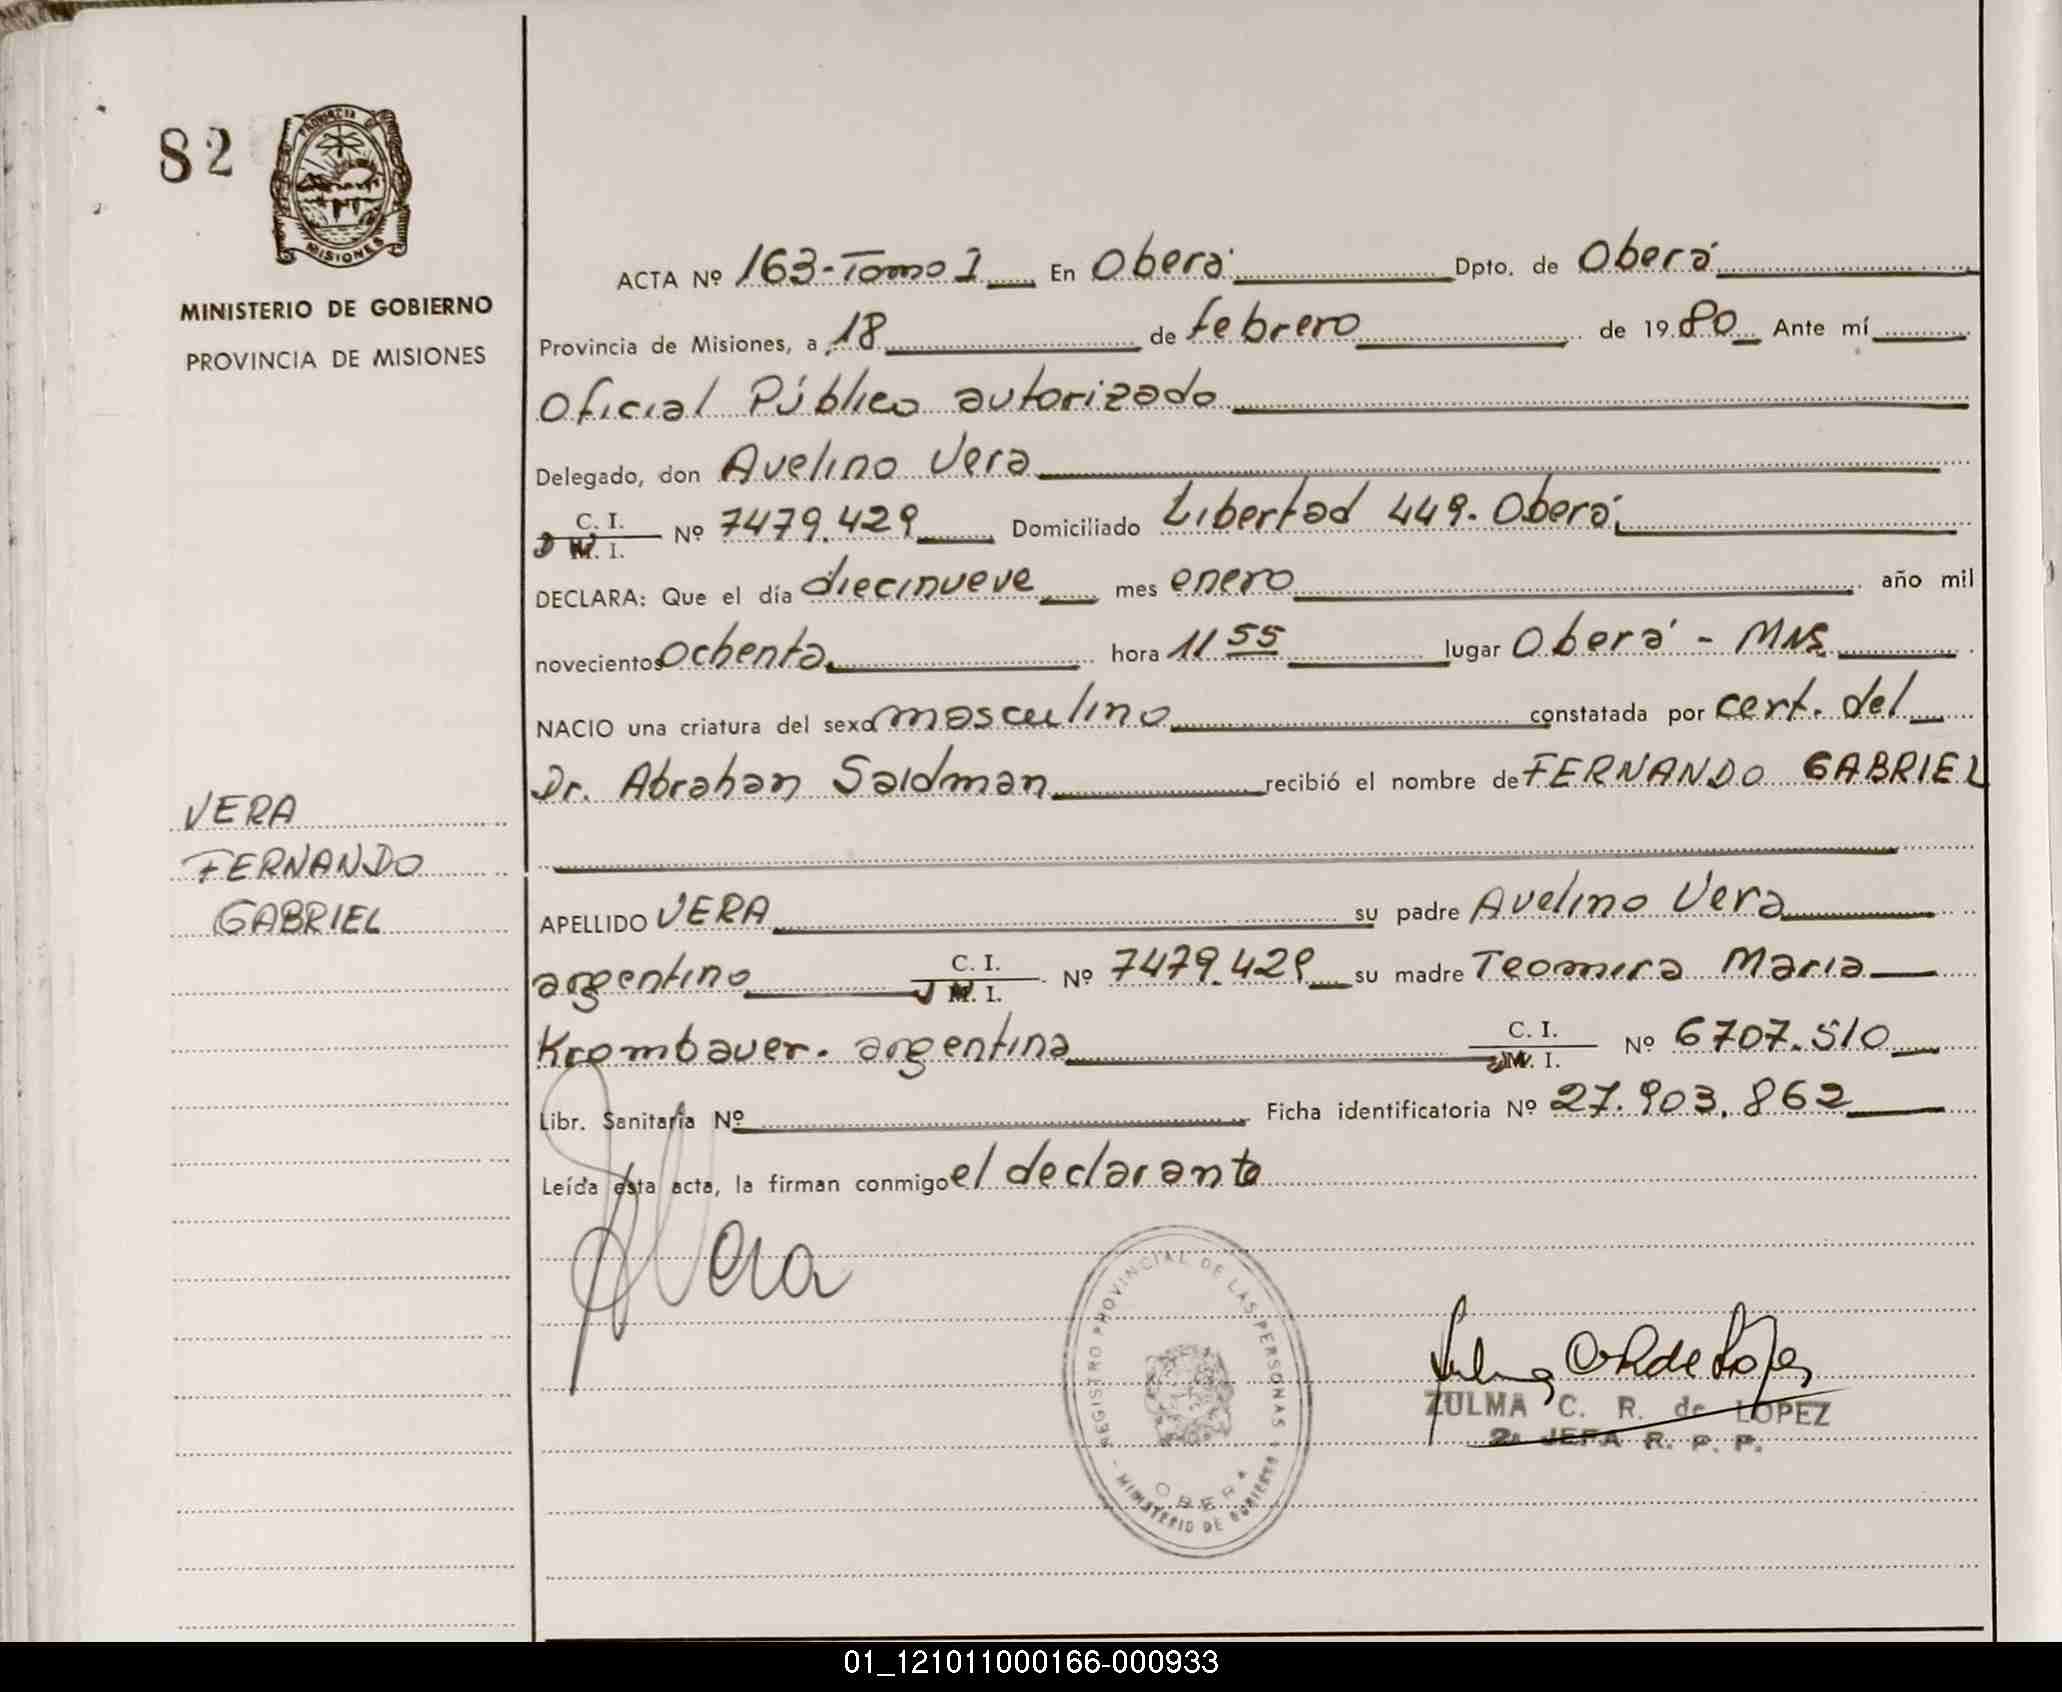 82
PROVINCIA DE
MISIONES
MINISTERIO DE GOBIERNO
PROVINCIA DE MISIONES
ACTA Nº 163-Tomo I En Oberá Dpto. de Oberá
Provincia de Misiones, a 18 de febrero de 1980 Ante mí
Oficial Público autorizado
Delegado, don Avelino Vera
C. I.
D M. I. Nº 7479.429 Domiciliado Libertad 449. Oberá
DECLARA: Que el día diecinueve mes enero año mil
novecientos ochenta hora 11 55 lugar Oberá - MNS
NACIO una criatura del sexo masculino constatada por cert. del
Dr. Abrahan Saidman recibió el nombre de FERNANDO GABRIEL
VERA
FERNANDO
GABRIEL
APELLIDO VERA su padre Avelino Vera
argentino C. I. M. I. Nº 7479.429 su madre Teomira Maria
Krombauer. argentina C. I. M. I. Nº 6707.510
Libr. Sanitaria Nº Ficha identificatoria Nº 27.903.862
Leída esta acta, la firman conmigo el declarante
Vera
REGISTRO PROVINCIAL DE LAS PERSONAS
MINISTERIO DE GOBIERNO
OBERA
Zulma de Lopez
ZULMA C. R. de LOPEZ
2a JEFA R. P. P.
01_121011000166-000933